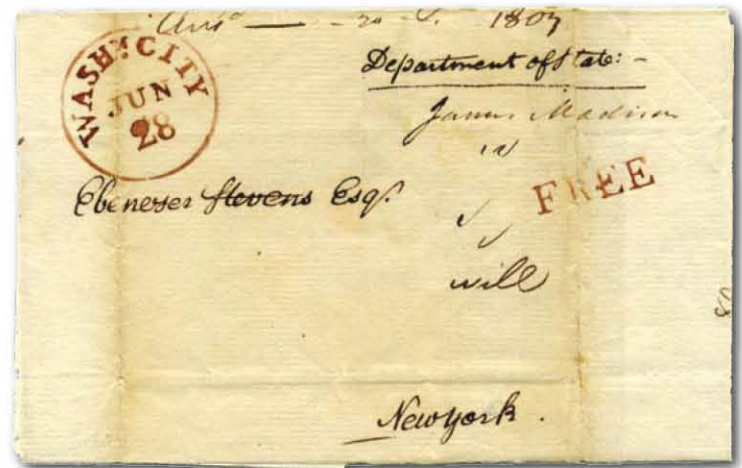 1807
WASHN. CITY
JUN
28
Department of State: -
James Madison
FREE
Ebenezer Stevens Esqr.
will
New york .